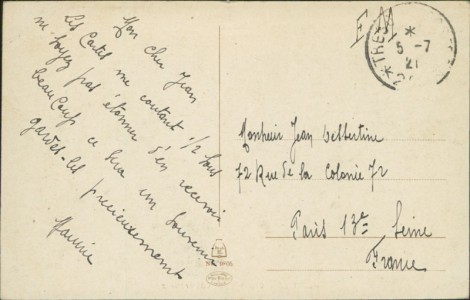 Mon cher Jean
les cartes me coutant 1/2 sous
ne soyez pas étonner d'en recevoir
beaucoup ce sera un souvenir
gardez-les précieusement
Maurice
F M
* THE *
5-7
21
Monsieur Jean
72 Rue de la Colonie 72
Paris 13e Seine
France